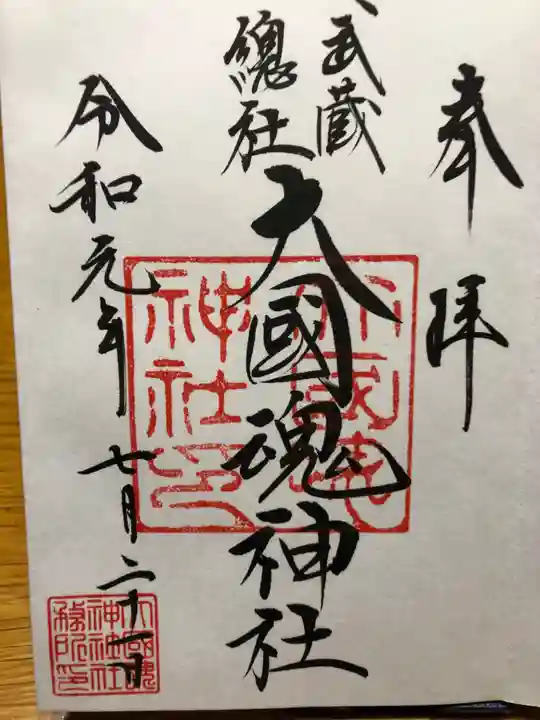 奉拝
武蔵
總社
大國魂神社
令和元年七月二十一日
大國魂
神社
神社印
大國魂
神社
務所印